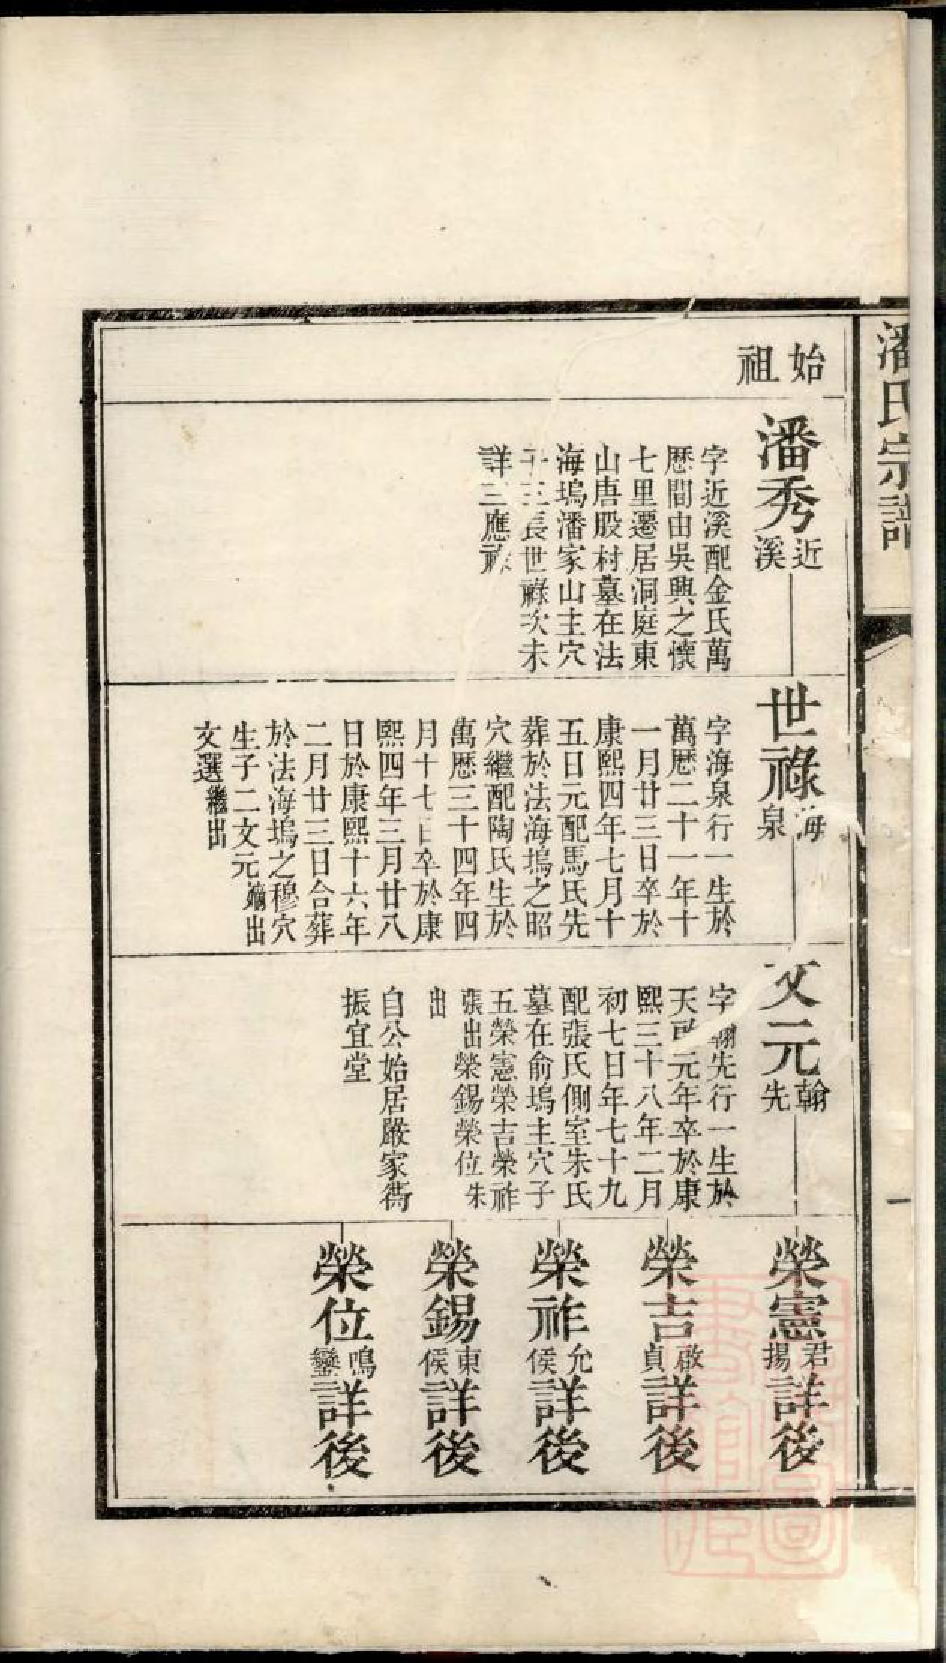 潘氏宗譜
一
始祖
潘秀
近溪
字近溪配金氏萬
歷間由吳興之懷
七里遷居洞庭東
山唐股村墓在法
海塢潘家山主穴
子三長世祿次未
詳三應祿
世祿
海泉
字海泉行一生於
萬歷二十一年十
一月廿三日卒於
康熙四年七月十
五日元配馬氏先
葬於法海塢之昭
穴繼配陶氏生於
萬歷三十四年四
月十七日卒於康
熙四年三月廿八
日於康熙十六年
二月廿三日合葬
於法海塢之穆穴
生子二文元嫡出
文選繼出
文元
翰先
字翰先行一生於
天啟元年卒於康
熙三十八年二月
初七日年七十九
配張氏側室朱氏
墓在俞塢主穴子
五榮憲榮吉榮祚
張出榮錫榮位朱
出
自公始居嚴家衖
振宜堂
榮憲君揚詳後
榮吉啟貞詳後
榮祚允侯詳後
榮錫東侯詳後
榮位鳴鑾詳後